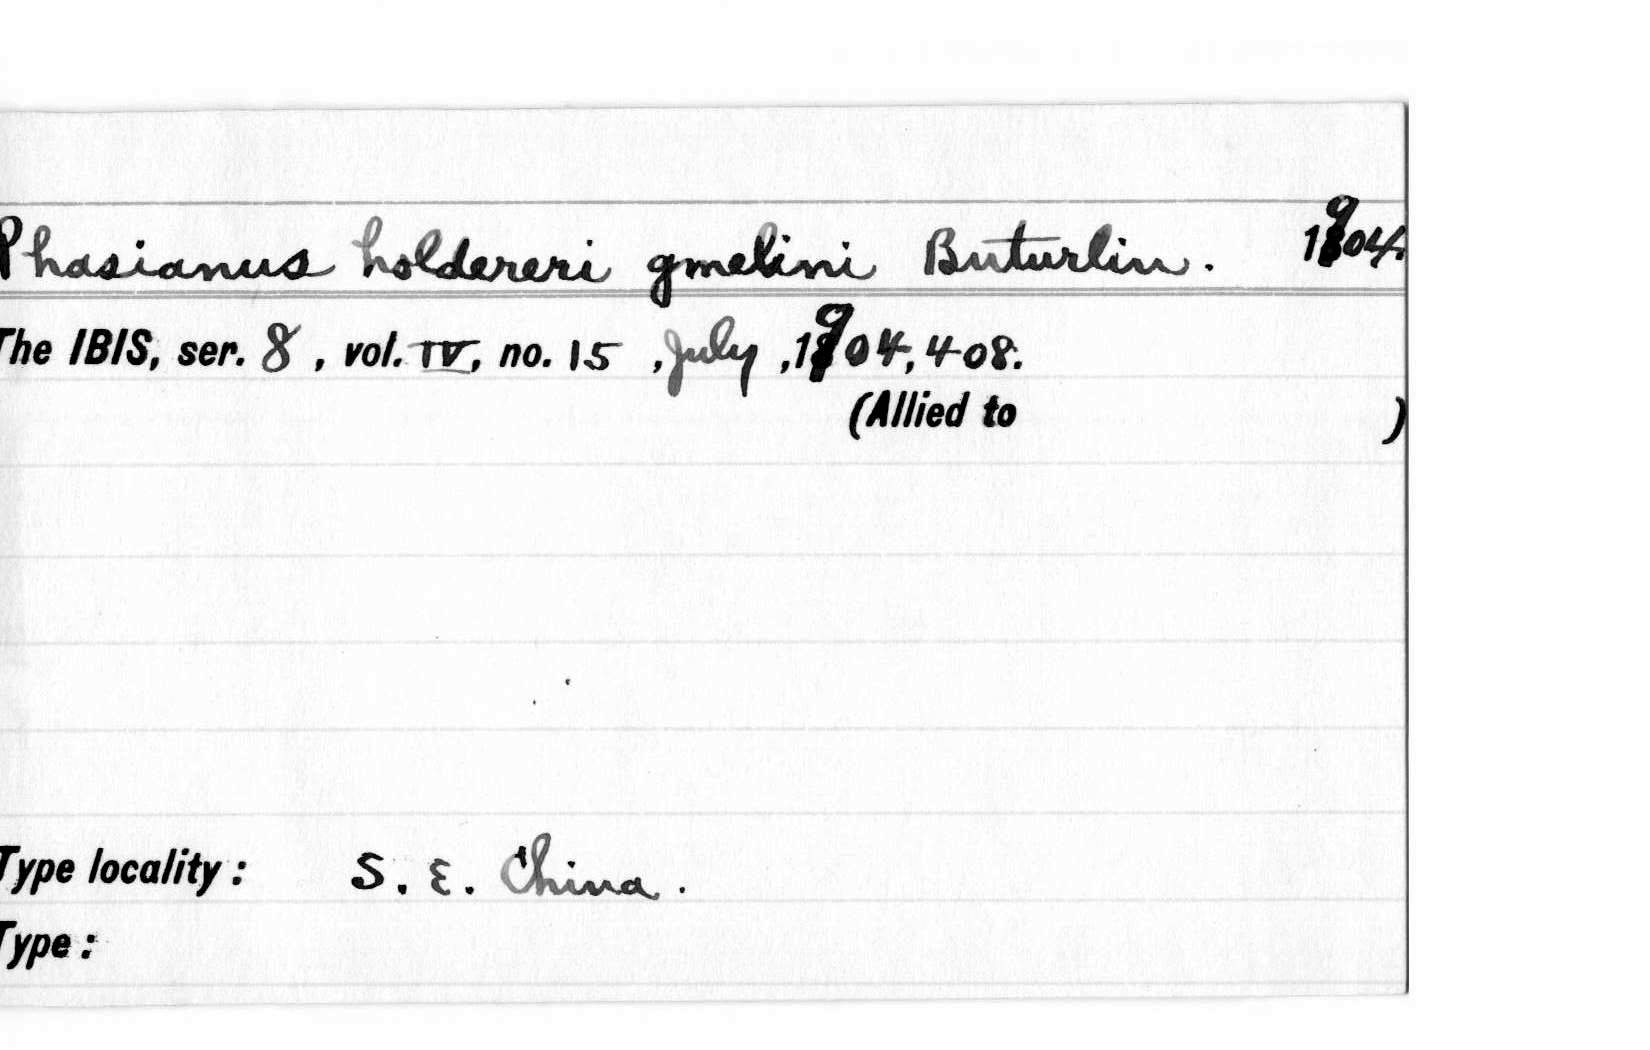 Phasianus holdereri gmelini Buturlin. 1904.
The IBIS, ser. 8, vol. IV, no. 15, July, 1904, 408.
(Allied to )
Type locality: S. E. China.
Type: